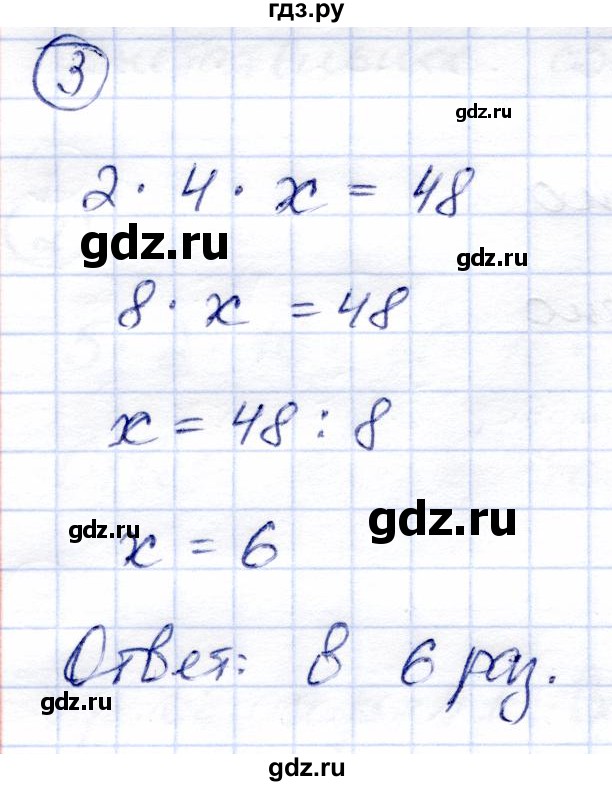 гдз.ру
3
gdz.ru
2 · 4 · x = 48
gdz.ru
gdz.ru
8 · x = 48
x = 48 : 8
gdz.ru
gdz.ru
x = 6
Ответ: в 6 раз.
gdz.ru
gdz.ru